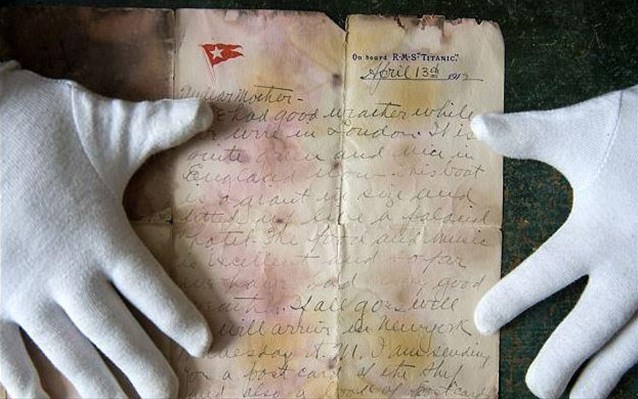 On board R·M·S "TITANIC".
April 13th 1912
My dear Mother-
had good weather while
were in London. It is
quite green and nice in
England now. This boat
is a giant in size and
fitted up like a palacial
hotel. The food and music
is excellent and so far
we have had very good
weather. If all goes well
will arrive in New York
Wednesday A.M. I am sending
you a post card of the ship
and also a book of postcards